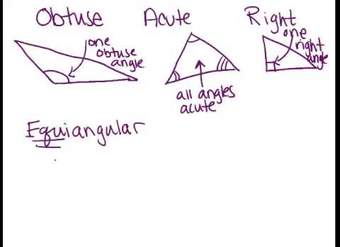 Obtuse
Acute
Right
one
obtuse
angle
all angles
acute
one
right
angle
Equiangular